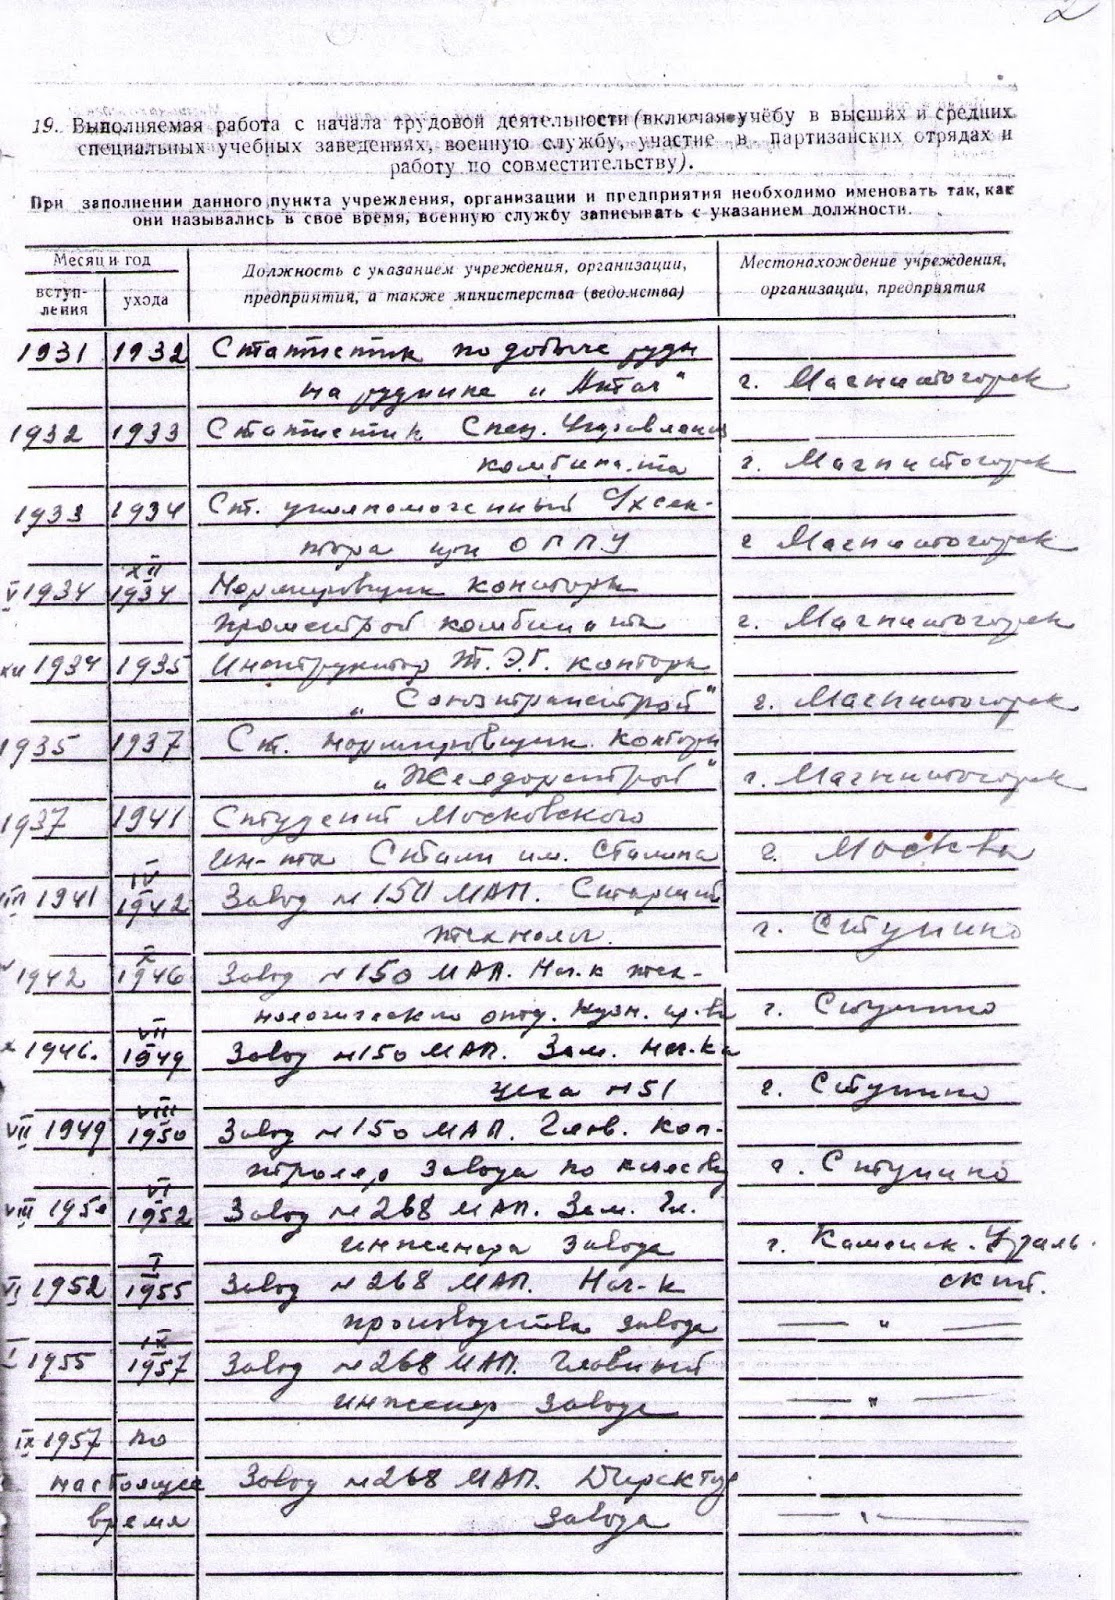 2
19. Выполняемая работа с начала трудовой деятельности (включая учёбу в высших и средних
специальных учебных заведениях, военную службу, участие в партизанских отрядах и
работу по совместительству).
При заполнении данного пункта учреждения, организации и предприятия необходимо именовать так, как
они назывались в свое время, военную службу записывать с указанием должности.
Месяц и год
вступ-
ления
ухода
Должность с указанием учреждения, организации,
предприятия, а также министерства (ведомства)
Местонахождение учреждения,
организации, предприятия
1931 1932 Статистик по добыче руды
на руднике "Актач" г. Магнитогорск
1932 1933 Статистик Спец. Управления
комбината г. Магнитогорск
1933 1934 Ст. уполномоченный
при ОГПУ г Магнитогорск
XII
V 1934 1934 Нормировщик конторы
Промстрой комбината г. Магнитогорск
XII 1934 1935 Инструктор Т.Э.Г. конторы
„Союзтрансстрой" г. Магнитогорск
1935 1937 Ст. нормировщик конторы
„Желдорстрой" г. Магнитогорск
1937 1941 Студент Московского
ин-та Стали им. Сталина г. Москва
IV
1941 1942 Завод №150 МАП. Старший
технолог. г. Ступино
X
1942 1946 Завод №150 МАП. Нач-к тех-
нологического отд. Кузн. пр-ва г. Ступино
VII
X 1946. 1949 Завод №150 МАП. Зам. Нач-ка
цеха №51 г. Ступино
VIII
VII 1949 1950 Завод №150 МАП. Глав. Кон-
тролер Завода по качеству г. Ступино
VI
VIII 1950 1952 Завод №268 МАП. Зам. Гл.
инженера Завода г. Каменск-Ураль-
I
VI 1952 1955 Завод №268 МАП. Нач-к ский.
производства завода — " —
IX
I 1955 1957 Завод №268 МАП. Главный
инженер Завода — " —
IX 1957 по
настоящее Завод №268 МАП. Директор
время Завода — " —